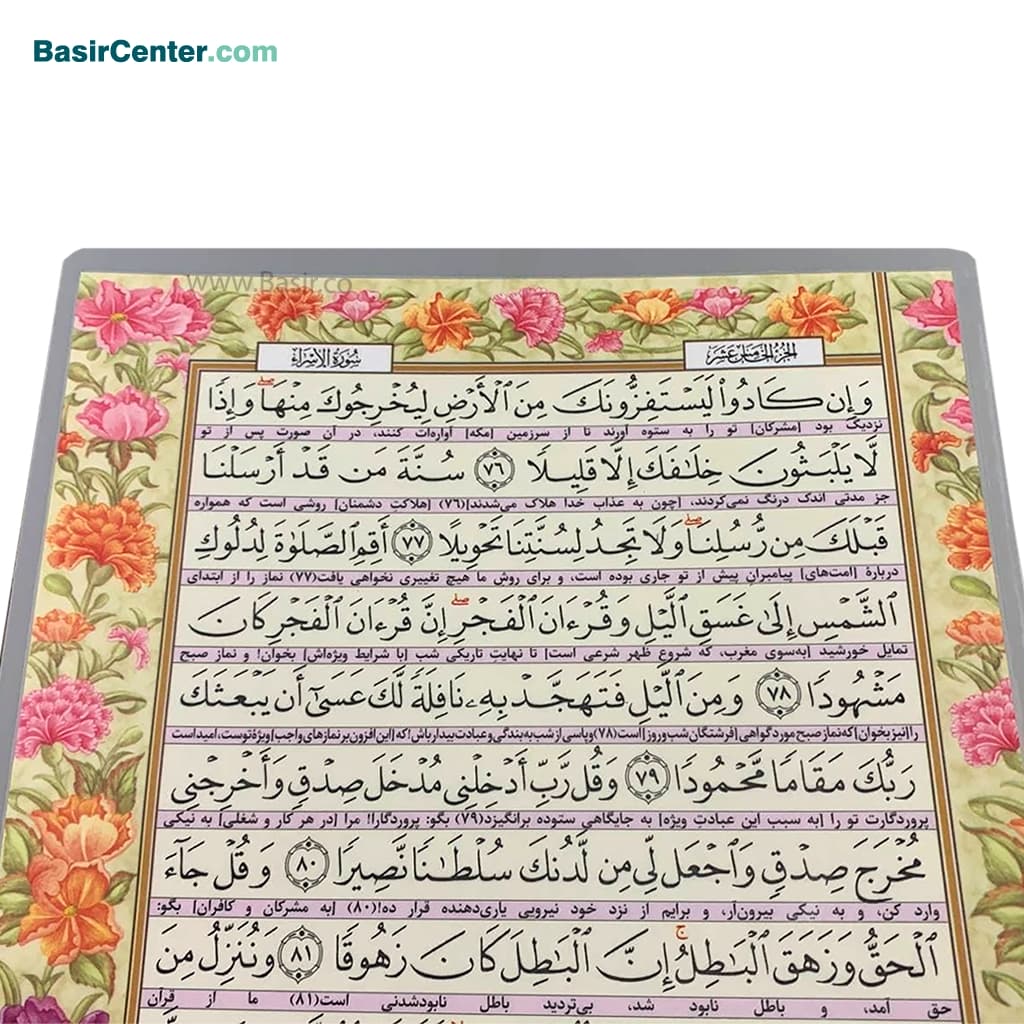 BasirCenter.com
www.Basir.co
الجزء الخامس عشر
سورة الإسراء
وَإِن كَادُوا۟ لَيَسْتَفِزُّونَكَ مِنَ ٱلْأَرْضِ لِيُخْرِجُوكَ مِنْهَا ۖ وَإِذًا
نزدیک بود [مشرکان] تو را به ستوه آورند تا از سرزمین [مکه] آواره‌ات کنند، در آن صورت پس از تو
لَّا يَلْبَثُونَ خِلَـٰفَكَ إِلَّا قَلِيلًا ﴿٧٦﴾ سُنَّةَ مَن قَدْ أَرْسَلْنَا
جز مدتی اندک درنگ نمی‌کردند، [چون به عذاب خدا هلاک می‌شدند](۷۶) [هلاکتِ دشمنان] روشی است که همواره
قَبْلَكَ مِن رُّسُلِنَا ۖ وَلَا تَجِدُ لِسُنَّتِنَا تَحْوِيلًا ﴿٧٧﴾ أَقِمِ ٱلصَّلَوٰةَ لِدُلُوكِ
دربارهٔ [امت‌های] پیامبرانِ پیش از تو جاری بوده است، و برای روش ما هیچ تغییری نخواهی یافت(۷۷) نماز را از ابتدای
ٱلشَّمْسِ إِلَىٰ غَسَقِ ٱلَّيْلِ وَقُرْءَانَ ٱلْفَجْرِ ۖ إِنَّ قُرْءَانَ ٱلْفَجْرِ كَانَ
تمایل خورشید [به‌سوی مغرب، که شروع ظهر شرعی است] تا نهایتِ تاریکی شب [با شرایط ویژه‌اش] بخوان! و نماز صبح
مَشْهُودًا ﴿٧٨﴾ وَمِنَ ٱلَّيْلِ فَتَهَجَّدْ بِهِۦ نَافِلَةً لَّكَ عَسَىٰٓ أَن يَبْعَثَكَ
را [نیز بخوان] که نماز صبح مورد گواهی [فرشتگان شب و روز] است(۷۸) و پاسی از شب به بندگی و عبادت بیدار باش! که [این افزون بر نمازهای واجب] ویژهٔ توست، امید است
رَبُّكَ مَقَامًا مَّحْمُودًا ﴿٧٩﴾ وَقُل رَّبِّ أَدْخِلْنِى مُدْخَلَ صِدْقٍ وَأَخْرِجْنِى
پروردگارت تو را [به سبب این عبادتِ ویژه] به جایگاهی ستوده برانگیزد(۷۹) بگو: پروردگارا! مرا [در هر کار و شغلی] به نیکی
مُخْرَجَ صِدْقٍ وَٱجْعَل لِّى مِن لَّدُنكَ سُلْطَـٰنًا نَّصِيرًا ﴿٨٠﴾ وَقُلْ جَآءَ
وارد کن، و به نیکی بیرون‌آر، و برایم از نزد خود نیرویی یاری‌دهنده قرار ده!(۸۰) [به مشرکان و کافران] بگو:
ٱلْحَقُّ وَزَهَقَ ٱلْبَـٰطِلُ ۚ إِنَّ ٱلْبَـٰطِلَ كَانَ زَهُوقًا ﴿٨١﴾ وَنُنَزِّلُ مِنَ
حق آمد، و باطل نابود شد، بی‌تردید باطل نابودشدنی است(۸۱) ما از قرآن